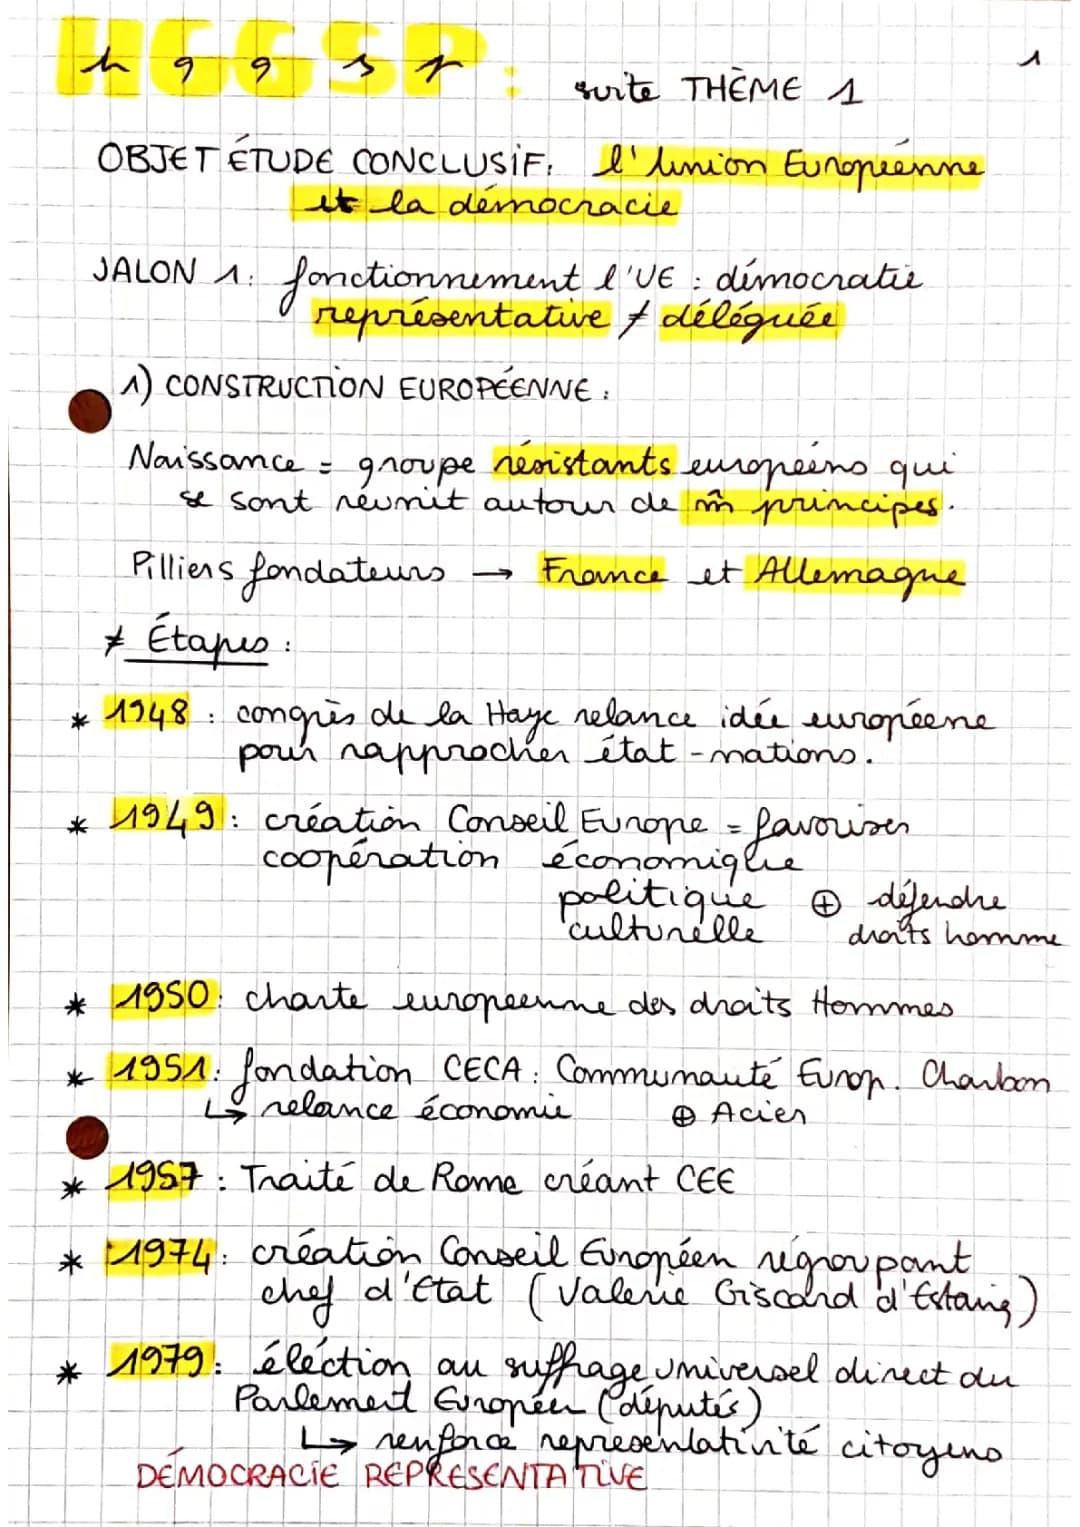 HGGSP : suite THÈME 1
1
OBJET ÉTUDE CONCLUSIF: l'Union Européenne
et la démocracie
JALON 1: fonctionnement l'UE : démocratie
représentative ≠ déléguée
1) CONSTRUCTION EUROPÉENNE :
Naissance = groupe résistants européens qui
se sont réunit autour de m̂ principes.
Pilliers fondateurs → France et Allemagne
≠ Étapes :
* 1948 : congrès de la Haye relance idée européene
pour rapprocher état-nations.
* 1949 : création Conseil Europe = favoriser
coopération économique
politique ⊕ défendre
culturelle droits homme
* 1950 : charte européenne des droits Hommes
* 1951 : fondation CECA : Communauté Europ. Charbon
↳ relance économie ⊕ Acier
* 1957 : Traité de Rome créant CEE
* 1974 : création Conseil Européen régroupant
chef d'Etat (Valerie Giscard d'Estaing)
* 1979 : éléction au suffrage universel direct du
Parlement Européen (députés)
↳ renforce représentativité citoyens
DÉMOCRACIE REPRÉSENTATIVE